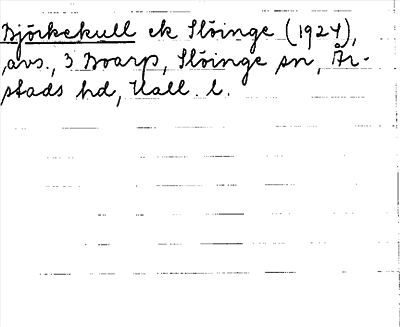 Björkekull ek Slöinge (1924),
avs., 3 Boarp, Slöinge sn, År-
stads hd, Hall. l.